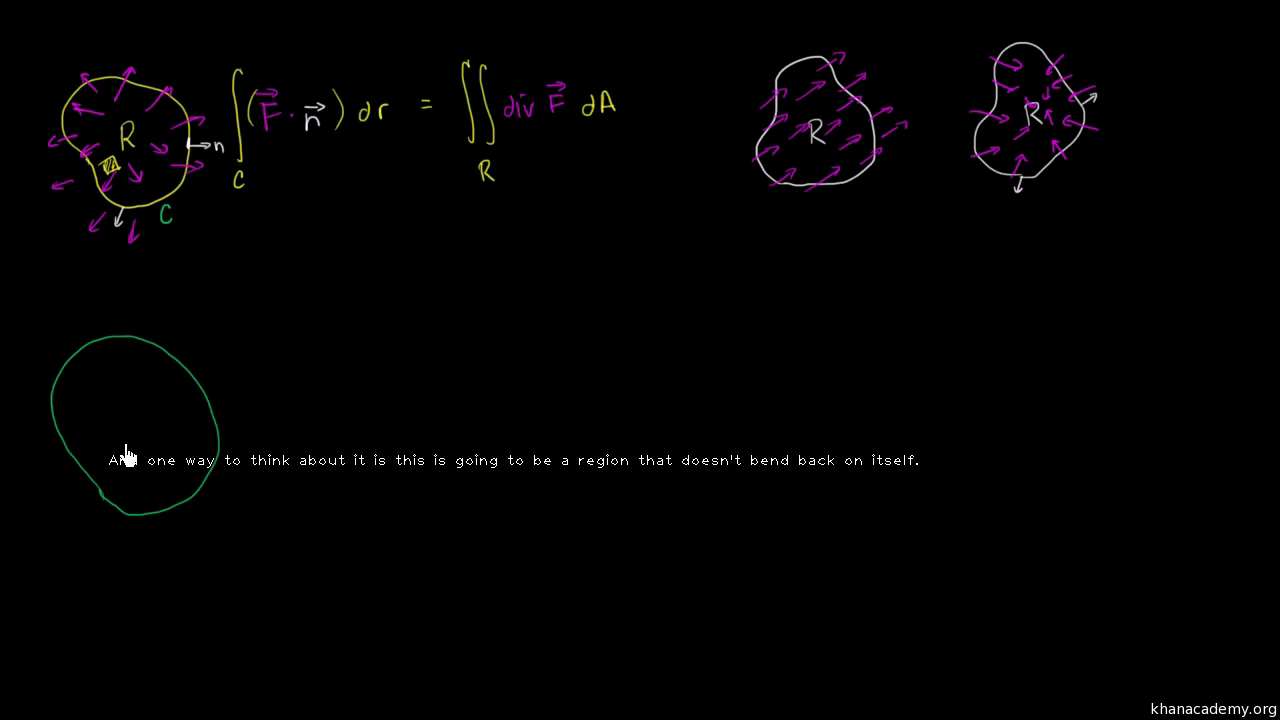 R
n
C
∫_C (F⃗ · n⃗) dr = ∬_R div F⃗ dA
R
R
And one way to think about it is this is going to be a region that doesn't bend back on itself.
khanacademy.org